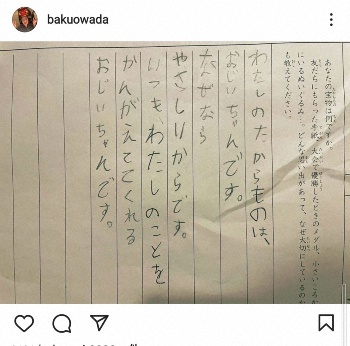 bakuowada
あなたの宝物は何ですか。
友だちにもらった手紙、大会で優勝したときのメダル、小さいころか
にいるぬいぐるみ…。どんな思い出があって、なぜ大切にしているのか
も教えてください。
わたしのたからものは、
おじいちゃんです。
なぜなら
やさしいからです。
いつも、わたしのことを
かんがえててくれる
おじいちゃんです。